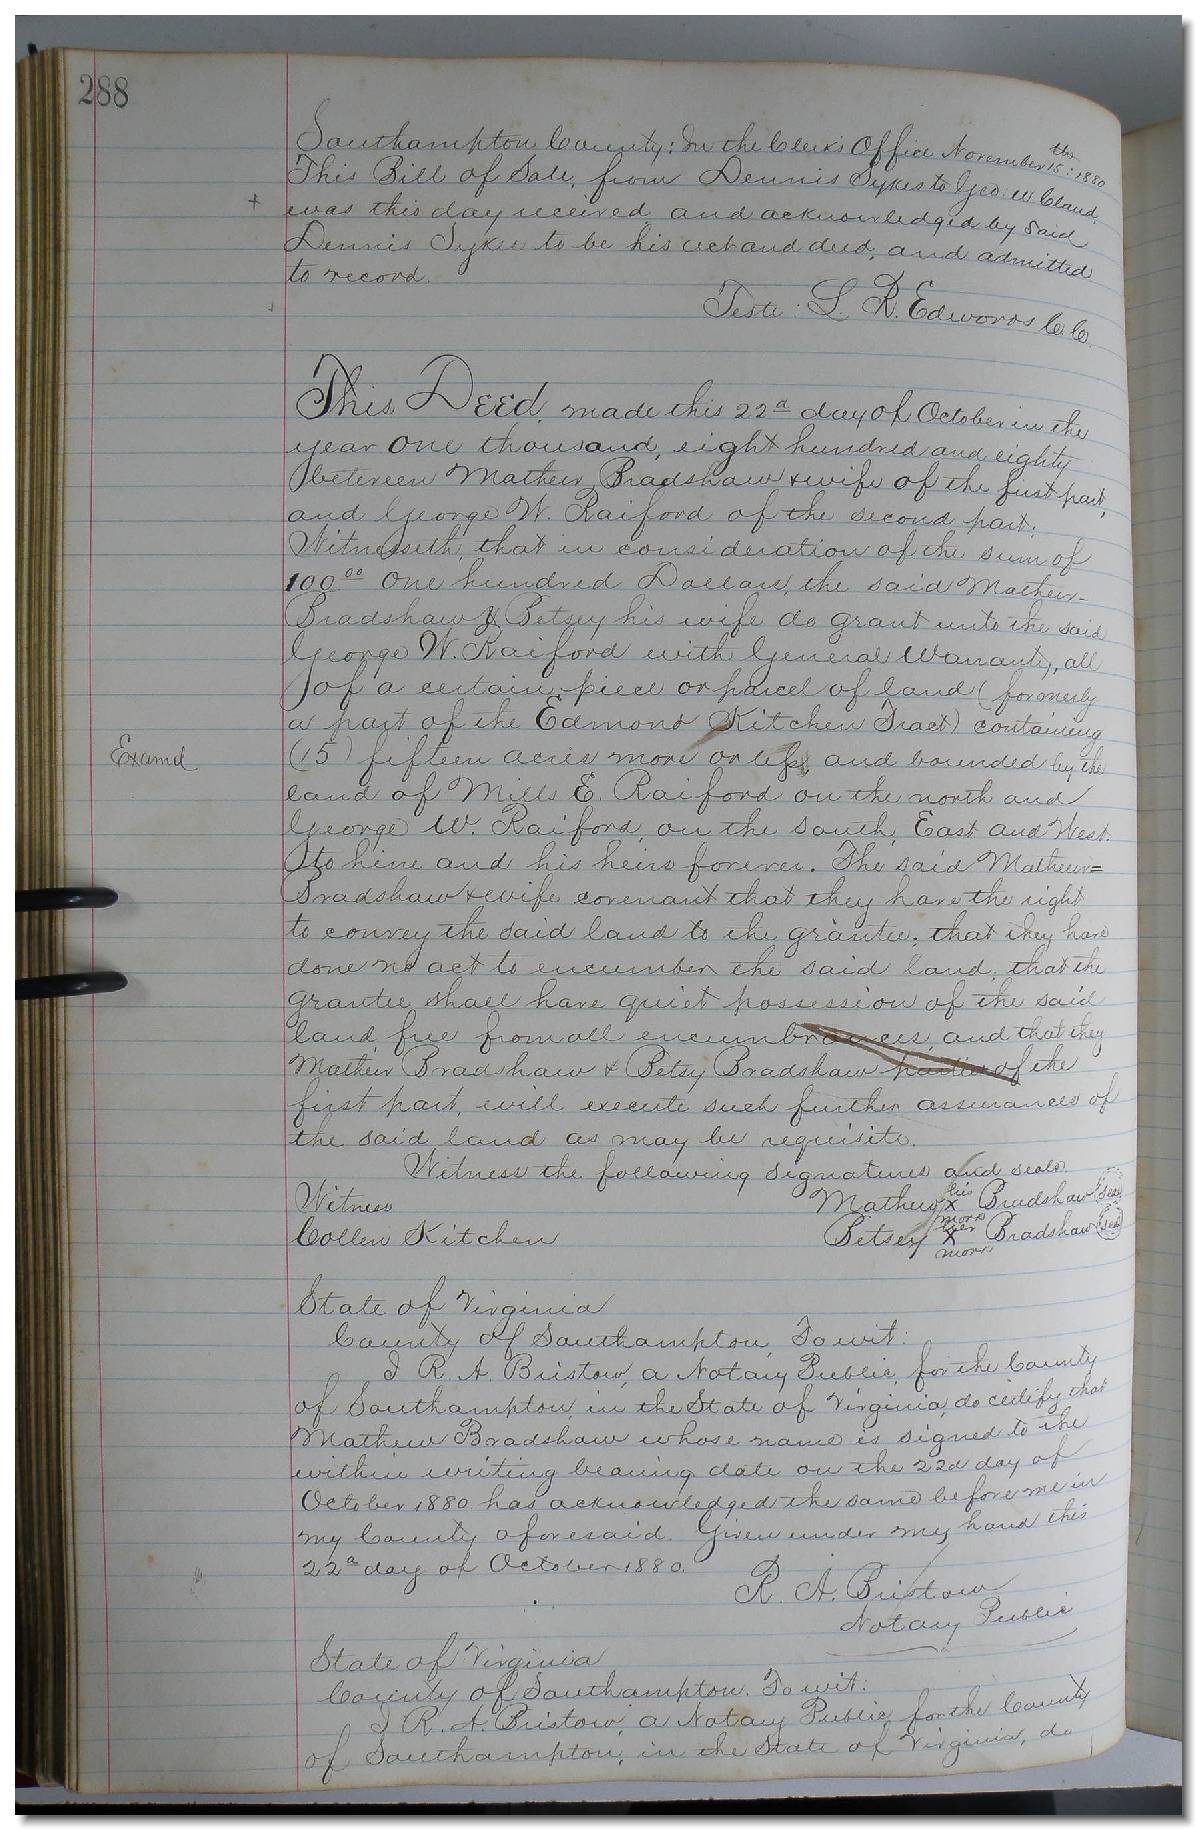 288
Southampton County: In the Clerks Office November 15th: 1880
This Bill of Sale, from Dennis Sykes to Geo. W. Claud
was this day received and acknowledged by said
Dennis Sykes to be his act and deed, and admitted
to record.
Teste: L. R. Edwards C. C.
This Deed, made this 22d day of October in the
year One thousand, eight hundred and eighty
between Mathew Bradshaw & wife of the first part,
and George W. Raiford of the second part:
Witnesseth, that in consideration of the sum of
100.00 One hundred Dollars, the said Mathew-
Bradshaw & Betsey his wife do grant unto the said
George W. Raiford with General Warranty, all
of a certain piece or parcel of land (formerly
a part of the Edmond Kitchen Tract) containing
Examd
(15) fifteen acres more or less, and bounded by the
land of Mills E. Raiford on the north and
George W. Raiford, on the south, East and West.
To him and his heirs forever. The said Mathew=
Bradshaw & wife covenant that they have the right
to convey the said land to the grantee; that they have
done no act to encumber the said land, that the
grantee shall have quiet possession of the said
land, free from all encumbrances, and that they
Mathew Bradshaw & Betsy Bradshaw parties of the
first part, will execute such further assurances of
the said land as may be requisite.
Witness the following signatures and seals.
Witness Mathew his X mark Bradshaw (seal)
Collen Kitchen Betsey her X mark Bradshaw (seal)
State of Virginia
County of Southampton, To wit:
I R. A. Bristow, a Notary Public, for the County
of Southampton, in the State of Virginia, do certify that
Mathew Bradshaw whose name is signed to the
within writing bearing date on the 22d day of
October 1880 has acknowledged the same before me in
my County aforesaid. Given under my hand this
22d day of October 1880.
R. A. Bristow
Notary Public
State of Virginia
County of Southampton. To wit:
I R. A. Bristow, a Notary Public for the County
of Southampton, in the State of Virginia, do